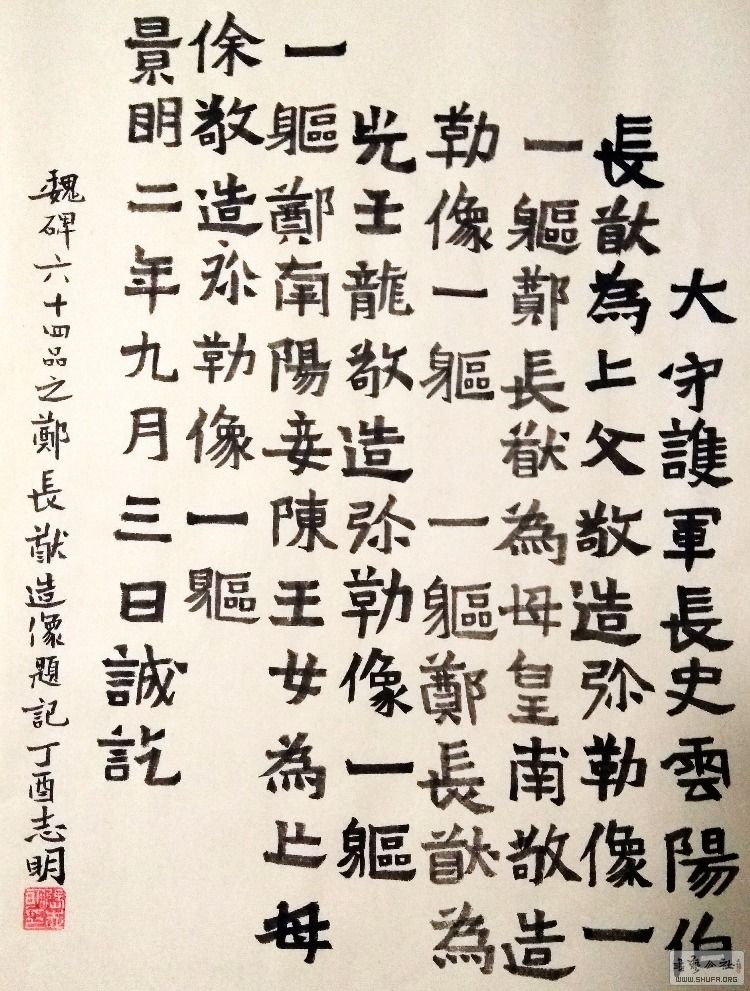 大守護軍長史雲陽伯
長猷為上父敬造弥勒像一
一軀鄭長猷為母皇南敬造
勒像一軀 一軀鄭長猷為
王龍敬造弥勒像一軀
一軀鄭南陽妾陳王女為亡母
徐敬造弥勒像一軀
景明二年九月三日誠訖
魏碑六十四品之鄭長猷造像題記丁酉志明
書藝公社
WWW.SHUFA.ORG